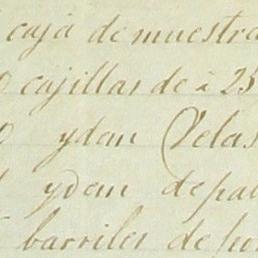 caja de muestra
cajillas de à 25
ydem Velas
ydem de pa
barriles de